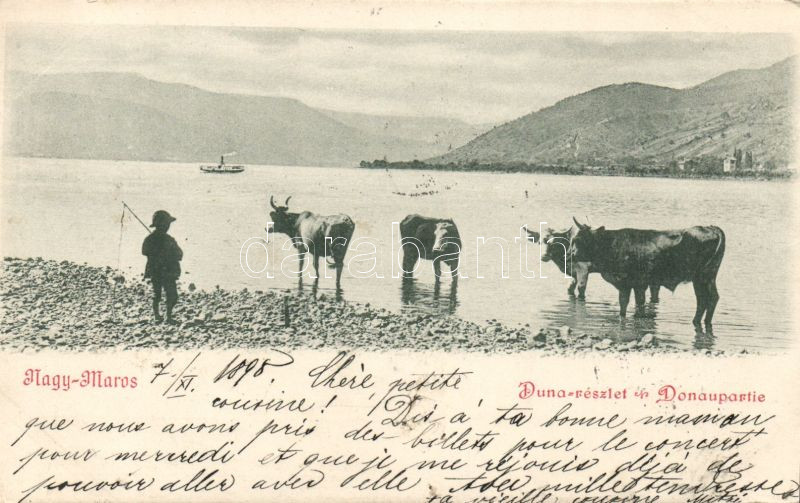 darabanth
Nagy-Maros
7/XI 1898
Chère petite
cousine!
Duna-részlet Donaupartie
Dis à ta bonne maman
que nous avons pris des billets pour le concert
pour mercredi et que je me réjouis déjà de
pouvoir aller avec elle
mille tendresses
ta vieille cousine